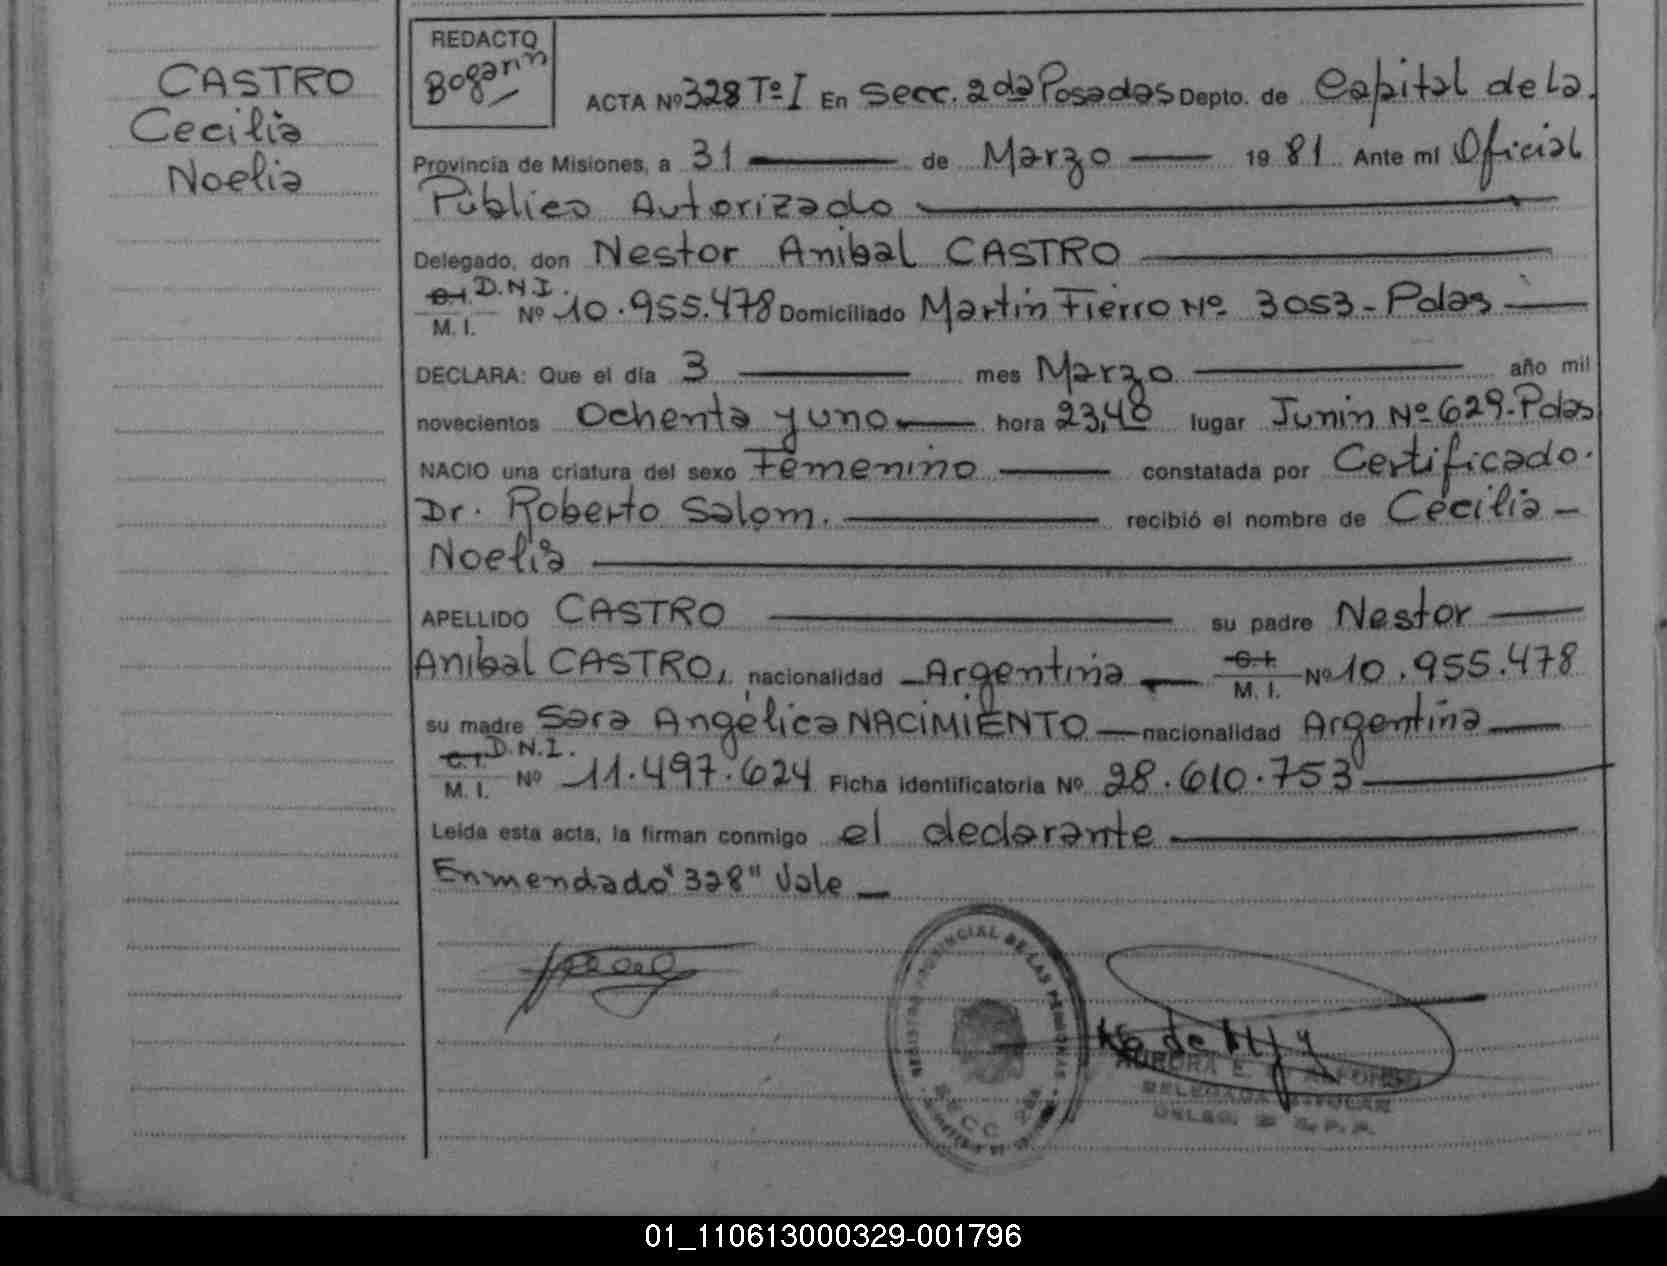 CASTRO
Cecilia
Noelia
REDACTO
Bogarin
ACTA Nº 328 Tº I En Secc. 2da Posadas Depto. de Capital de La.
Provincia de Misiones, a 31 de Marzo 19 81 Ante mí Oficial
Público Autorizado
Delegado, don Nestor Anibal CASTRO
C.I. D.N.I.
M. I. Nº 10.955.478 Domiciliado Martín Fierro Nº 3053-Pdas
DECLARA: Que el día 3 mes Marzo año mil
novecientos Ochenta y uno hora 23,40 lugar Junín Nº 629-Pdas
NACIO una criatura del sexo Femenino constatada por Certificado.
Dr. Roberto Salom. recibió el nombre de Cecilia
Noelia
APELLIDO CASTRO su padre Nestor
Anibal CASTRO, nacionalidad Argentina C.I. M. I. Nº 10.955.478
su madre Sara Angélica NACIMIENTO nacionalidad Argentina
C.I. D.N.I.
M. I. Nº 11.497.624 Ficha identificatoria Nº 28.610.753
Leída esta acta, la firman conmigo el declarante
Enmendado "328" Vale
PROVINCIAL DE LAS PERSONAS
SECC. 2da
AURORA E.
DELEGADA TITULAR
01_110613000329-001796